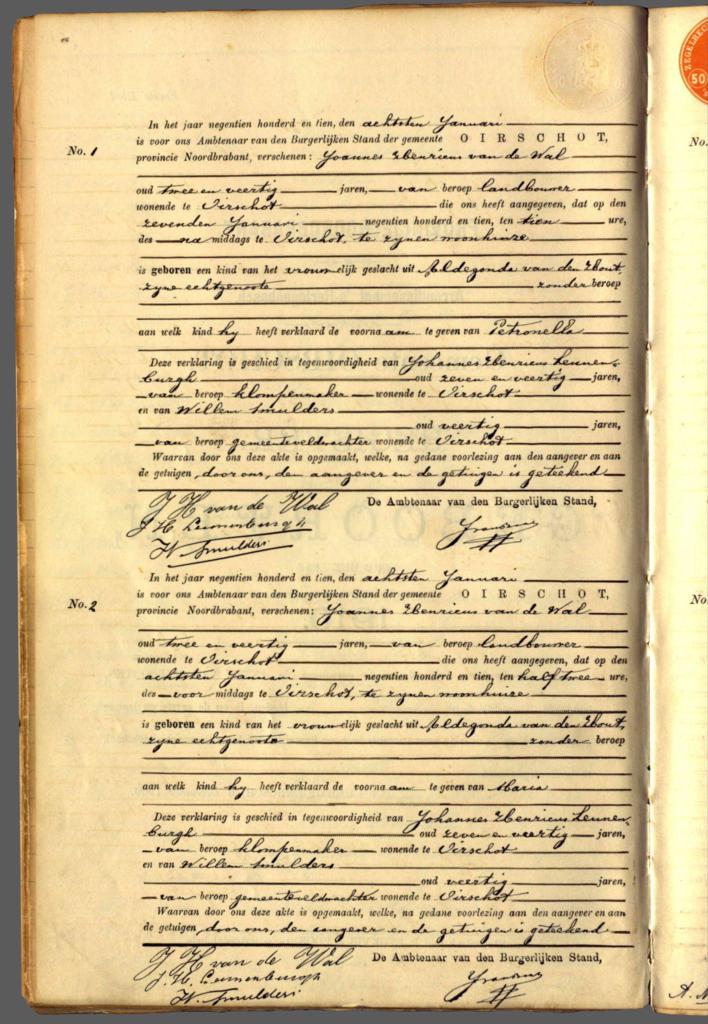 In het jaar negentien honderd en tien, den achtsten Januari
No. 1
is voor ons Ambtenaar van den Burgerlijken Stand der gemeente OIRSCHOT,
provincie Noordbrabant, verschenen: Joannes Henricus van de Wal
oud twee en veertig jaren, van beroep landbouwer
wonende te Oirschot die ons heeft aangegeven, dat op den
zevenden Januari negentien honderd en tien, ten tien ure,
des na middags te Oirschot, te zijnen woonhuize
is geboren een kind van het vrouwelijk geslacht uit Aldegonda van den Hout,
zijne echtgenoote zonder beroep
aan welk kind hij heeft verklaard de voornaam te geven van Petronella
Deze verklaring is geschied in tegenwoordigheid van Johannes Henricus Leunen-
burgh oud zeven en veertig jaren,
van beroep klompenmaker wonende te Oirschot
en van Willem Smulders
oud veertig jaren,
van beroep gemeenteveldwachter wonende te Oirschot
Waarvan door ons deze akte is opgemaakt, welke, na gedane voorlezing aan den aangever en aan
de getuigen, door ons, den aangever en de getuigen is geteekend
De Ambtenaar van den Burgerlijken Stand,
J H van de Wal
J. H. Leunenburgh
W. Smulders
In het jaar negentien honderd en tien, den achtsten Januari
No. 2
is voor ons Ambtenaar van den Burgerlijken Stand der gemeente OIRSCHOT,
provincie Noordbrabant, verschenen: Joannes Henricus van de Wal
oud twee en veertig jaren, van beroep landbouwer
wonende te Oirschot die ons heeft aangegeven, dat op den
achtsten Januari negentien honderd en tien, ten half twee ure,
des voor middags te Oirschot, te zijnen woonhuize
is geboren een kind van het vrouwelijk geslacht uit Aldegonda van den Hout,
zijne echtgenoote zonder beroep
aan welk kind hij heeft verklaard de voornaam te geven van Maria
Deze verklaring is geschied in tegenwoordigheid van Johannes Henricus Leunen-
burgh oud zeven en veertig jaren,
van beroep klompenmaker wonende te Oirschot
en van Willem Smulders
oud veertig jaren,
van beroep gemeenteveldwachter wonende te Oirschot
Waarvan door ons deze akte is opgemaakt, welke, na gedane voorlezing aan den aangever en aan
de getuigen, door ons, den aangever en de getuigen is geteekend
De Ambtenaar van den Burgerlijken Stand,
J H van de Wal
J. H. Leunenburgh
W. Smulders
50
No.
No.